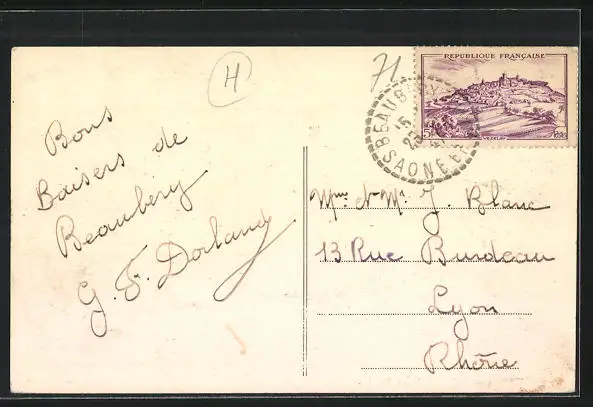 H
71
REPUBLIQUE FRANÇAISE
VEZELAY
BEAUBERY
15
25
SAONE ET
Bons
Baisers de
Beaubery
Mme et Mr J. Blanc
13 Rue Burdeau
Lyon
Rhône